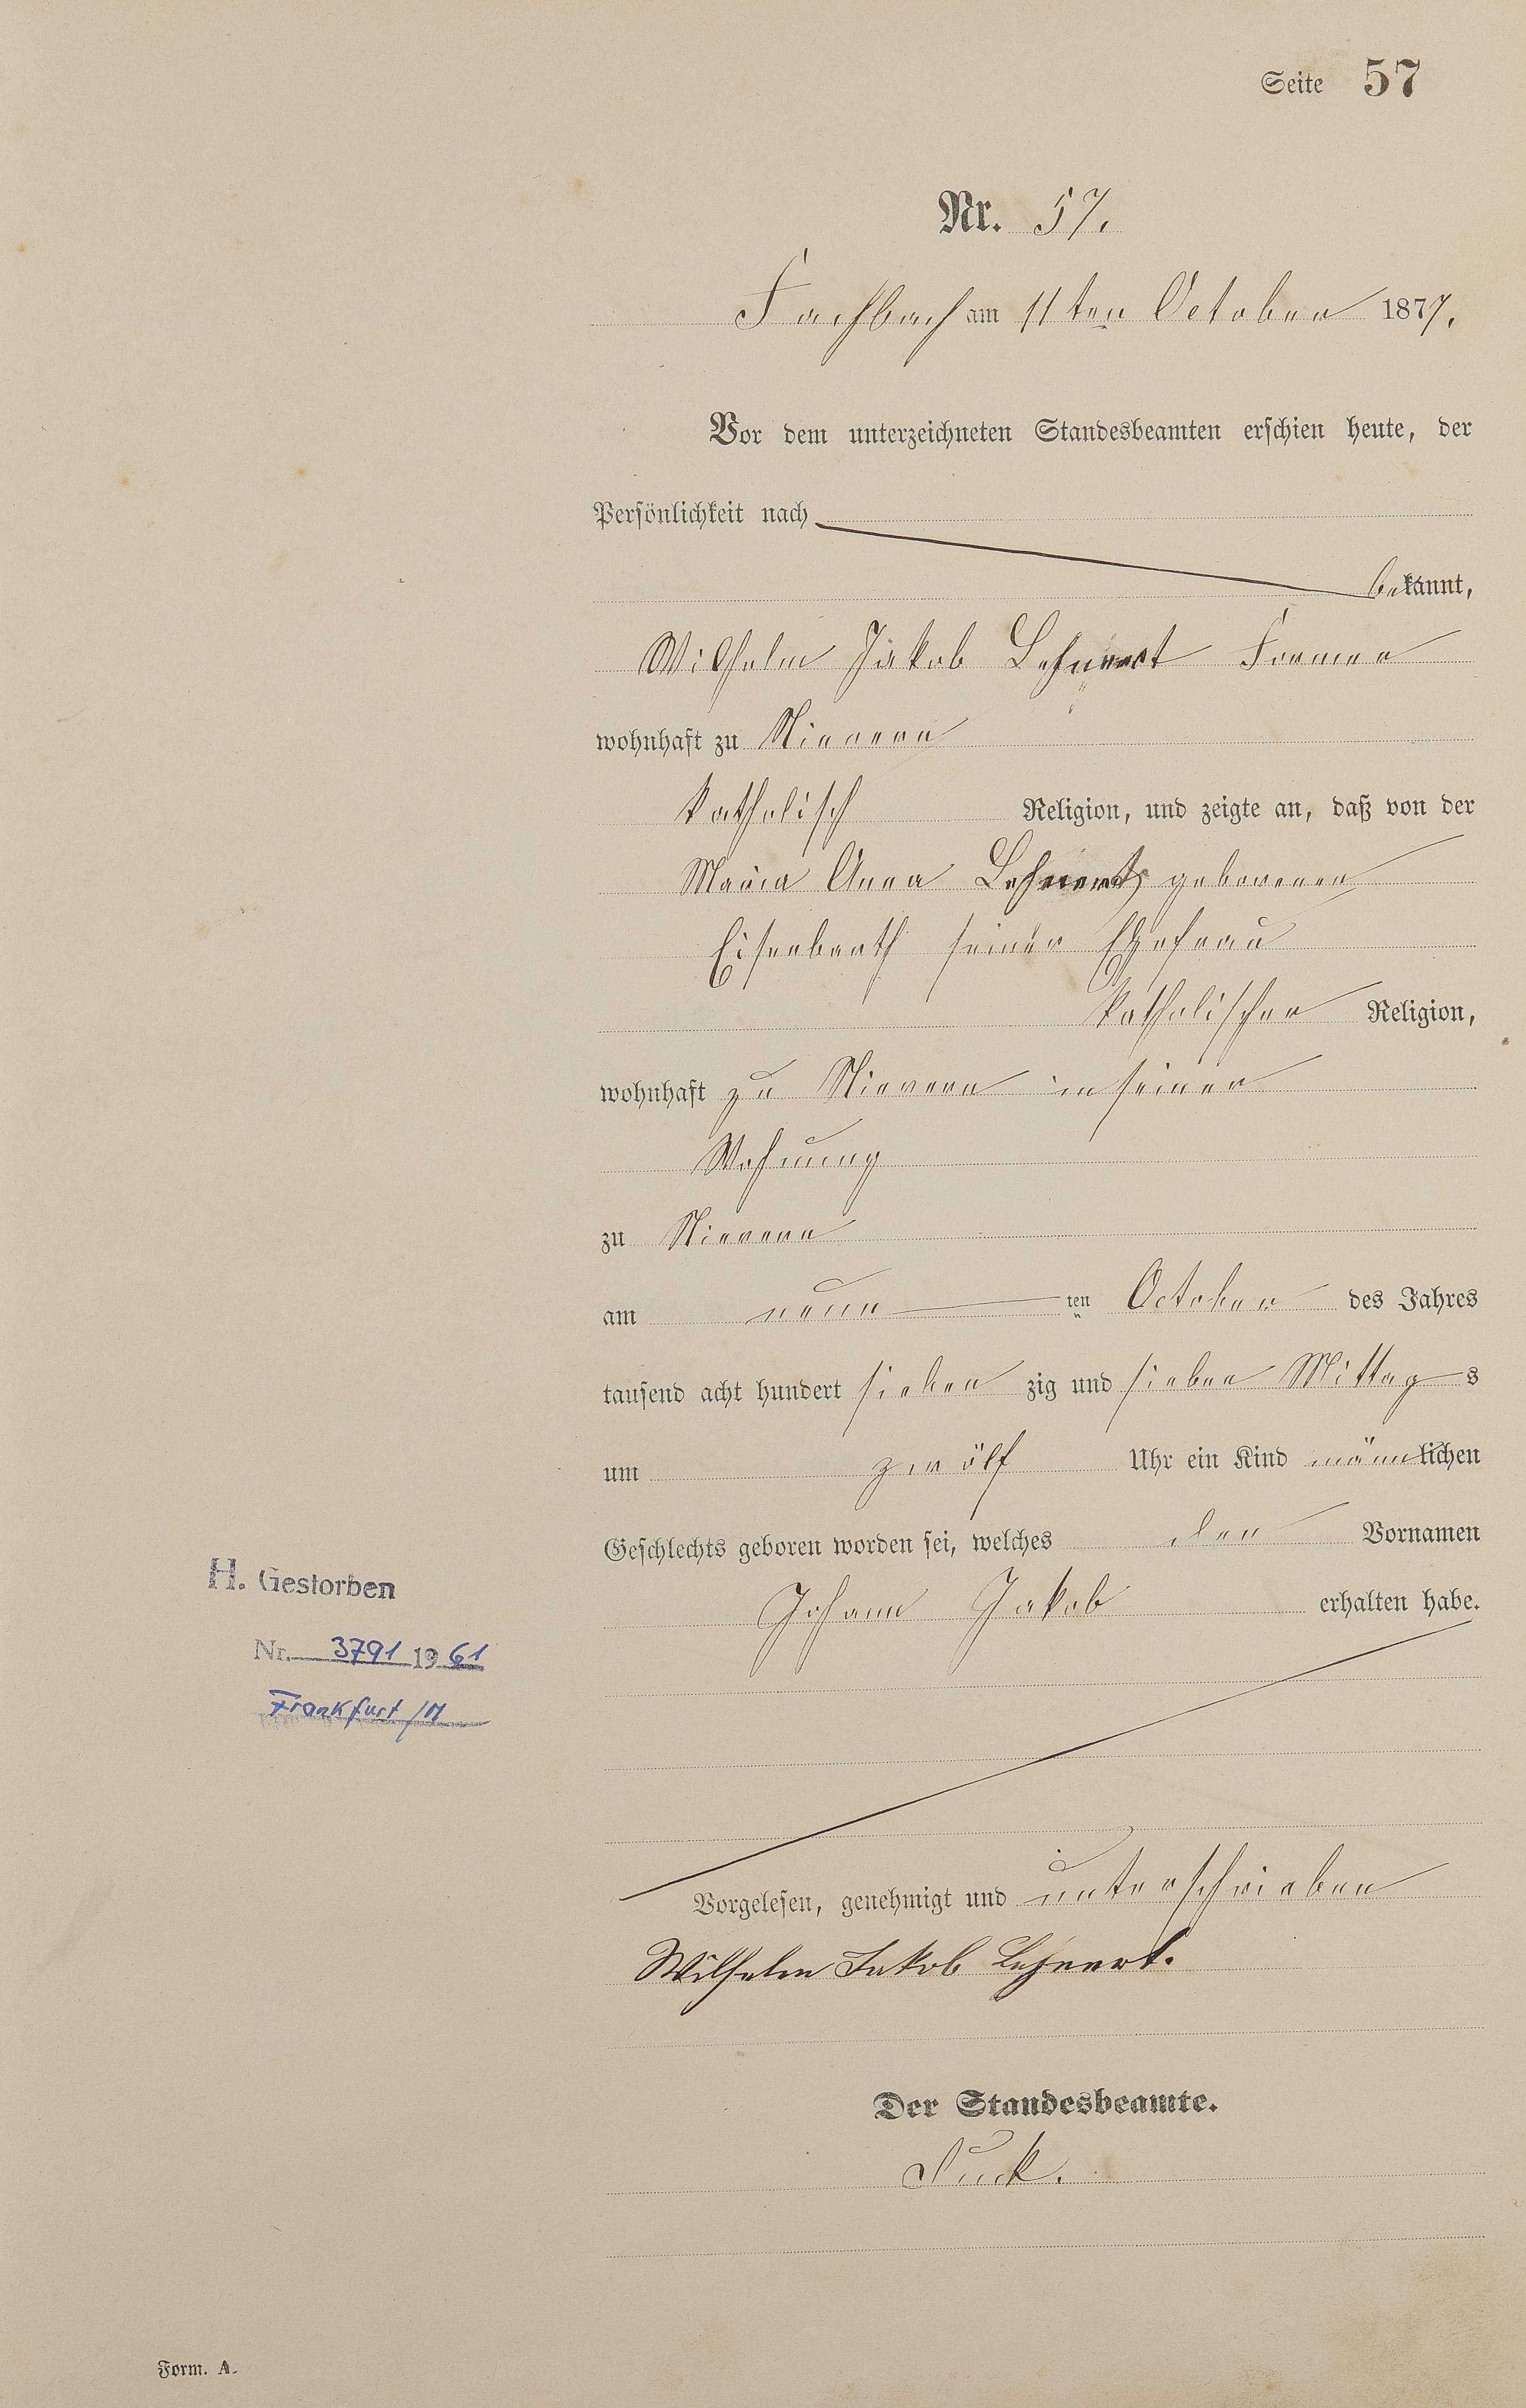 Seite 57
Nr. 57.
Fachbach am 11ten October 1877.
Vor dem unterzeichneten Standesbeamten erschien heute, der
Persönlichkeit nach
bekannt,
Wilhelm Jakob Lehnert Former
wohnhaft zu Nievern
katholisch Religion, und zeigte an, daß von der
Maria Anna Lehnert geborenen
Eisenbarth seiner Ehefrau
katholischer Religion,
wohnhaft zu Nievern in seiner
Wohnung
zu Nievern
am neun ten October des Jahres
tausend acht hundert sieben zig und sieben Mittags
um zwölf Uhr ein Kind männlichen
Geschlechts geboren worden sei, welches den Vornamen
Johann Jakob erhalten habe.
H. Gestorben
Nr. 3791 1961
Frankfurt/M
Vorgelesen, genehmigt und unterschrieben
Wilhelm Jakob Lehnert.
Der Standesbeamte.
Form. A.